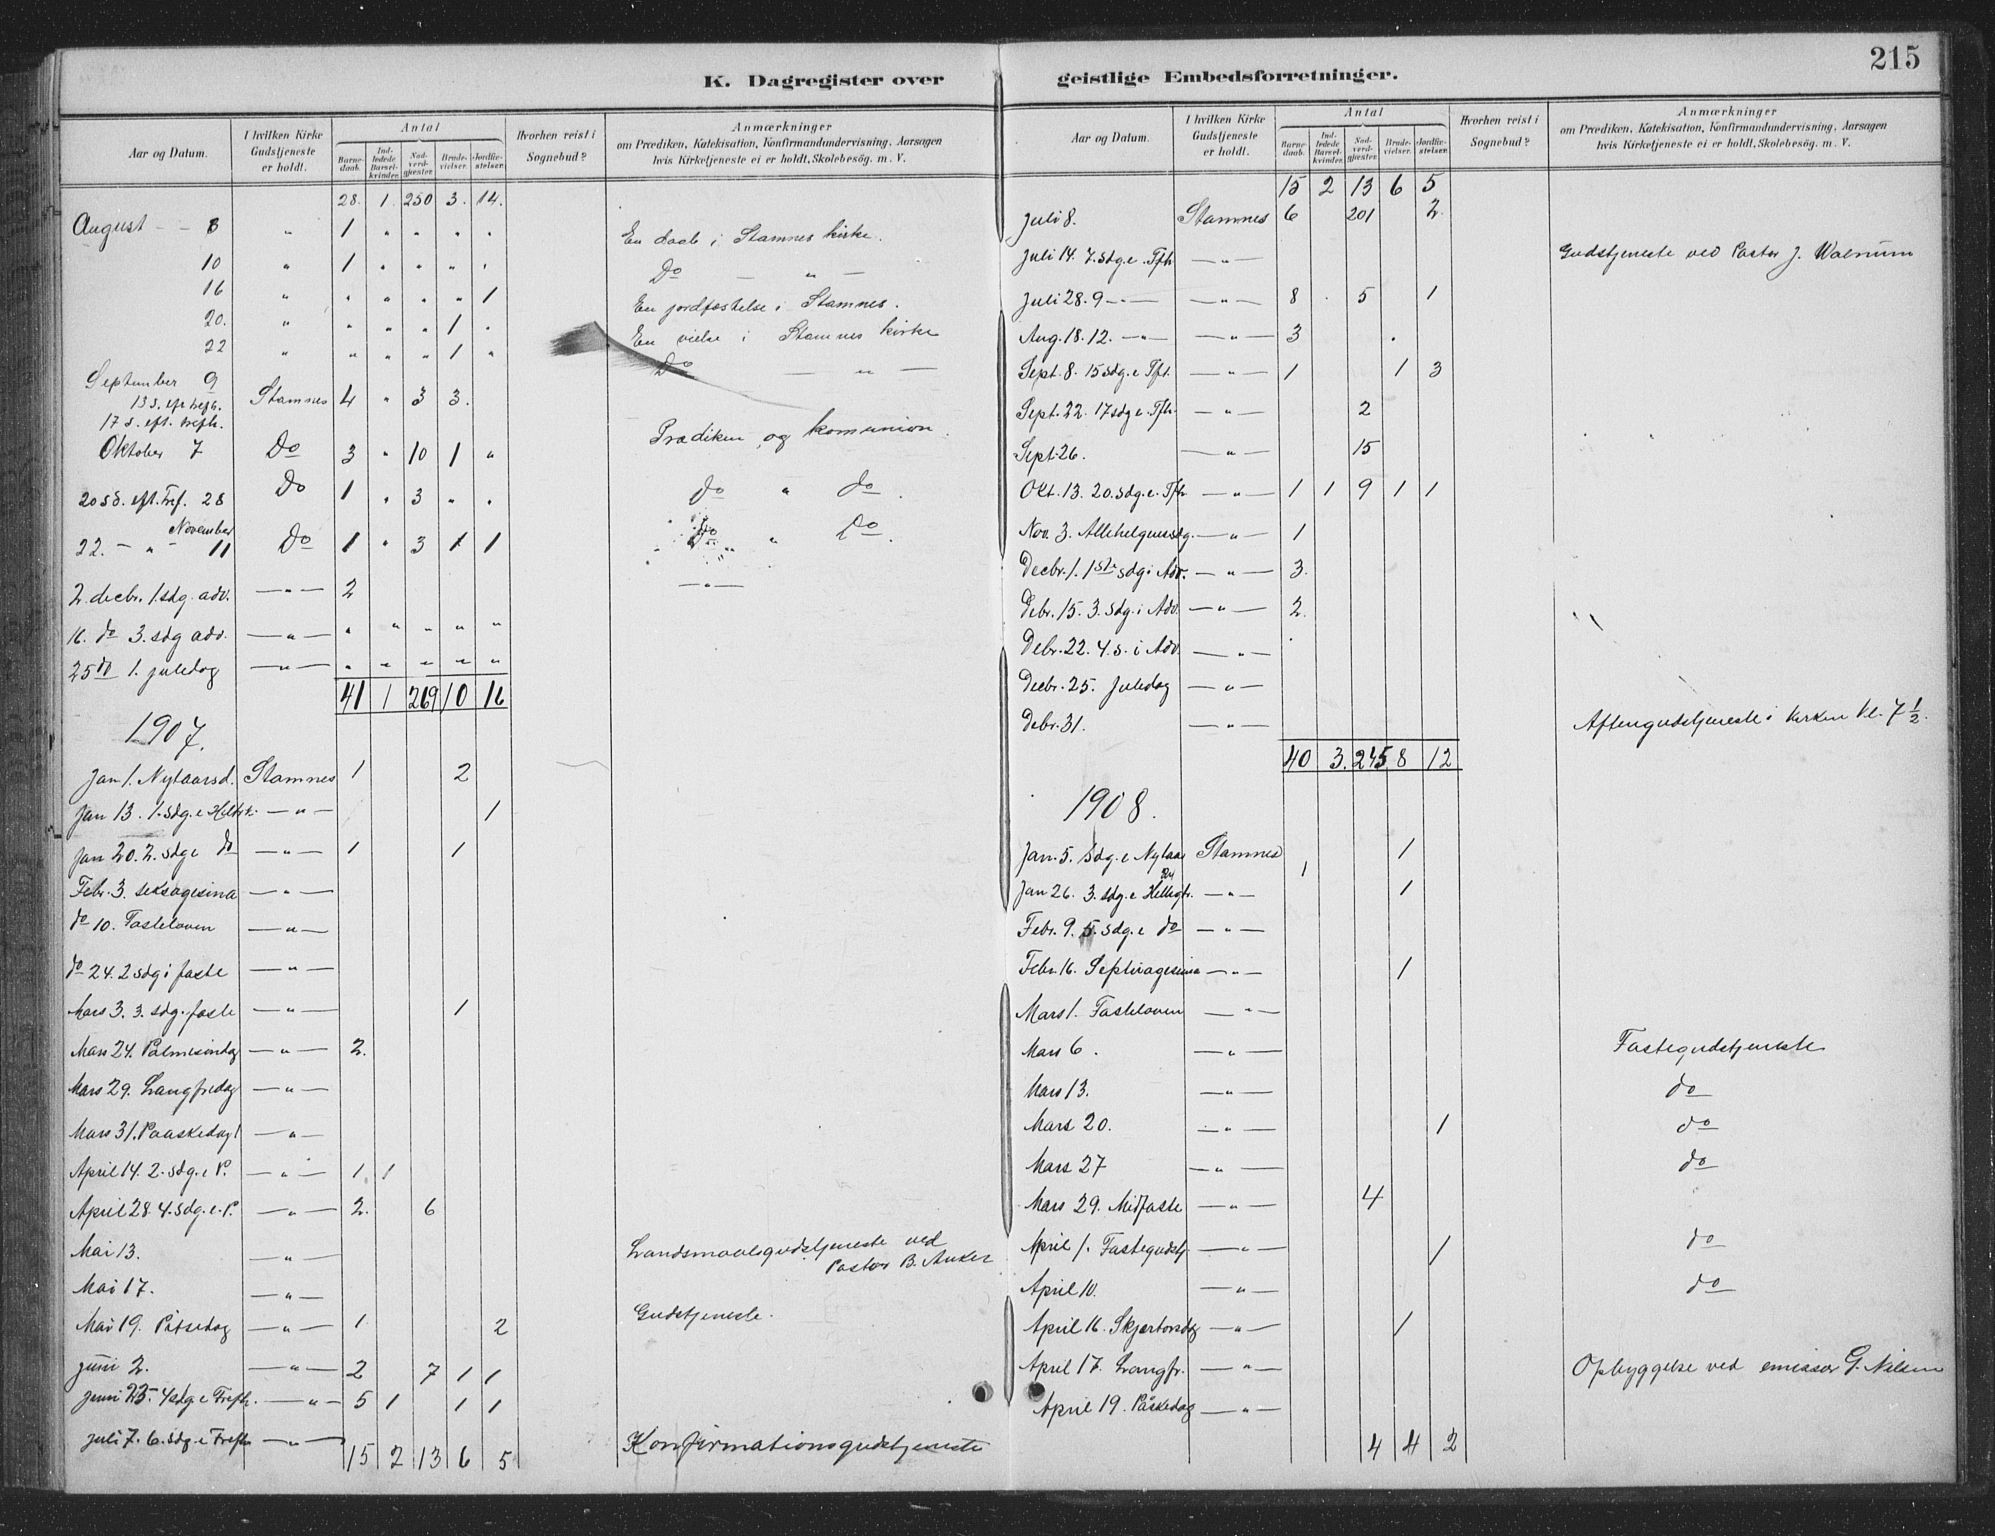 215
K. Dagregister over geistlige Embedsforretninger.
Aar og Datum. I hvilken Kirke Gudstjeneste er holdt. Antal Barnedaab. Indledede Barselkvinder. Nadverdgjester. Brudevielser. Jordfæstelser. Hvorhen reist i Sognebud? Anmærkninger om Prædiken, Katekisation, Konfirmandundervisning, Aarsagen hvis Kirketjeneste ei er holdt, Skolebesög. m. V.
28. 1. 250 3. 14.
August - - 8 " 1 " " " " En daab i Stamnes kirke.
10 " 1 " " " " Do — " —
16 " " " " " 1 En jordfæstelse i Stamnes.
20. " " " " 1 " En vielse i Stamnes kirke
22 " " " " 1 " Do — " —
September 9
13 S. eft trefh. Stamnes 4 " 3 3.
17 s. eft. trefh.
Oktober 7 Do 3 " 10 1 " Prædiken og komunion.
20 sd. eft. Tref. 28 Do 1 " 3 " " do " do.
November
22. — " — 11 Do 1 " 3 1 1 Do " Do.
2. decbr. 1. sdg. adv. — " — 2 — " —
16. do 3. sdg adv. — " — " " " " "
25 do 1. juledag — " — " " " " "
41 1 269 10 16
1907.
Jan 1. Nytaarsd. Stamnes 1 2
Jan 13. 1. sdg. e — " — 1
Jan 20. 2. sdg e do — " — 1 1
Febr. 3 seksagesima — " —
do 10. Fastelaven — " —
do 24. 2 sdg i faste — " —
Mars 3. 3. sdg. i faste — " — 1
Mars 24. Palmesøndag — " — 2.
Mars 29. Langfredag — " —
Mars 31. Paaskedag 1 — " —
April 14. 2. sdg. e P. — " — 1 1
April 28. 4. sdg. e. P. — " — 2. 6
Mai 13. — " — Landsmaalsgudstjeneste ved
Pastor B. Anker
Mai 17. — " — Gudstjeneste.
Mai 19. Pitsedag — " — 1 2
Juni 2. — " — 2 7 1 1
Juni 23. 4 sdg e Trefh. — " — 5 1 1 1
Juli 7. 6. sdg. e Trefh — " — Konfirmationsgudstjeneste
15 2 13 6 5
Aar og Datum. I hvilken Kirke Gudstjeneste er holdt. Antal Barnedaab. Indledede Barselkvinder. Nadverdgjester. Brudevielser. Jordfæstelser. Hvorhen reist i Sognebud? Anmærkninger om Prædiken, Katekisation, Konfirmandundervisning, Aarsagen hvis Kirketjeneste ei er holdt, Skolebesög. m. V.
15 2 13 6 5
Juli 8. Stamnes 6 201 2
Juli 14. 7. sdg. e. Tfh — " — Gudstjeneste ved Pastor J. Walnum
Juli 28. 9 — " — — " — 8 5 1
Aug. 18. 12. — " — — " — 3
Sept. 8. 15 sdg. e Tft. — " — 1 1 3
Sept. 22. 17 sdg e Tfh. — " — 2
Sept. 26. — " — 15
Okt. 13. 20. sdg. e. Tfh — " — 1 1 9 1 1
Nov. 3. Allehelgensdg. — " — 1
Decbr. 1. 1ste sdg i Adv. — " — 3.
Debr. 15. 3. sdg. i Adv. — " — 2.
Debr. 22. 4. s. i Adv. — " —
Decbr. 25. Juledag — " —
Debr. 31. — " — Aftengudstjeneste i kirken kl. 7 1/2.
40 3. 245 8 12
1908.
Jan. 5. Sdg. e Nytaar Stamnes 1 1
Jan 26. 3. sdg. e — " — 1
Febr. 9. 5. sdg. e do — " —
Febr. 16. Septuagesima — " — 1
Mars 1. Fastelaven — " —
Mars 6. — " — Fastegudstjeneste
Mars 13. — " — do
Mars 20. — " — 1 do
Mars 27 — " — do
Mars 29. Midfaste — " — 4
April 1. Fastegudstj. — " — 1 do
April 10. — " — do
April 16. Skjærtorsdag — " — 1
April 17. Langfr. — " — Opbyggelse ved emissær G. Nilsen
April 19. Påskedag — " —
4 4 2